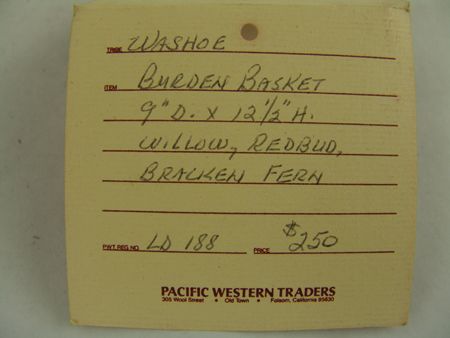 TRIBE WASHOE
ITEM BURDEN BASKET
9" D. X 12 1/2" H.
WILLOW, REDBUD,
BRACKEN FERN
PWT. REG. NO. LD 188 PRICE $250
PACIFIC WESTERN TRADERS
305 Wool Street • Old Town • Folsom, California 95630